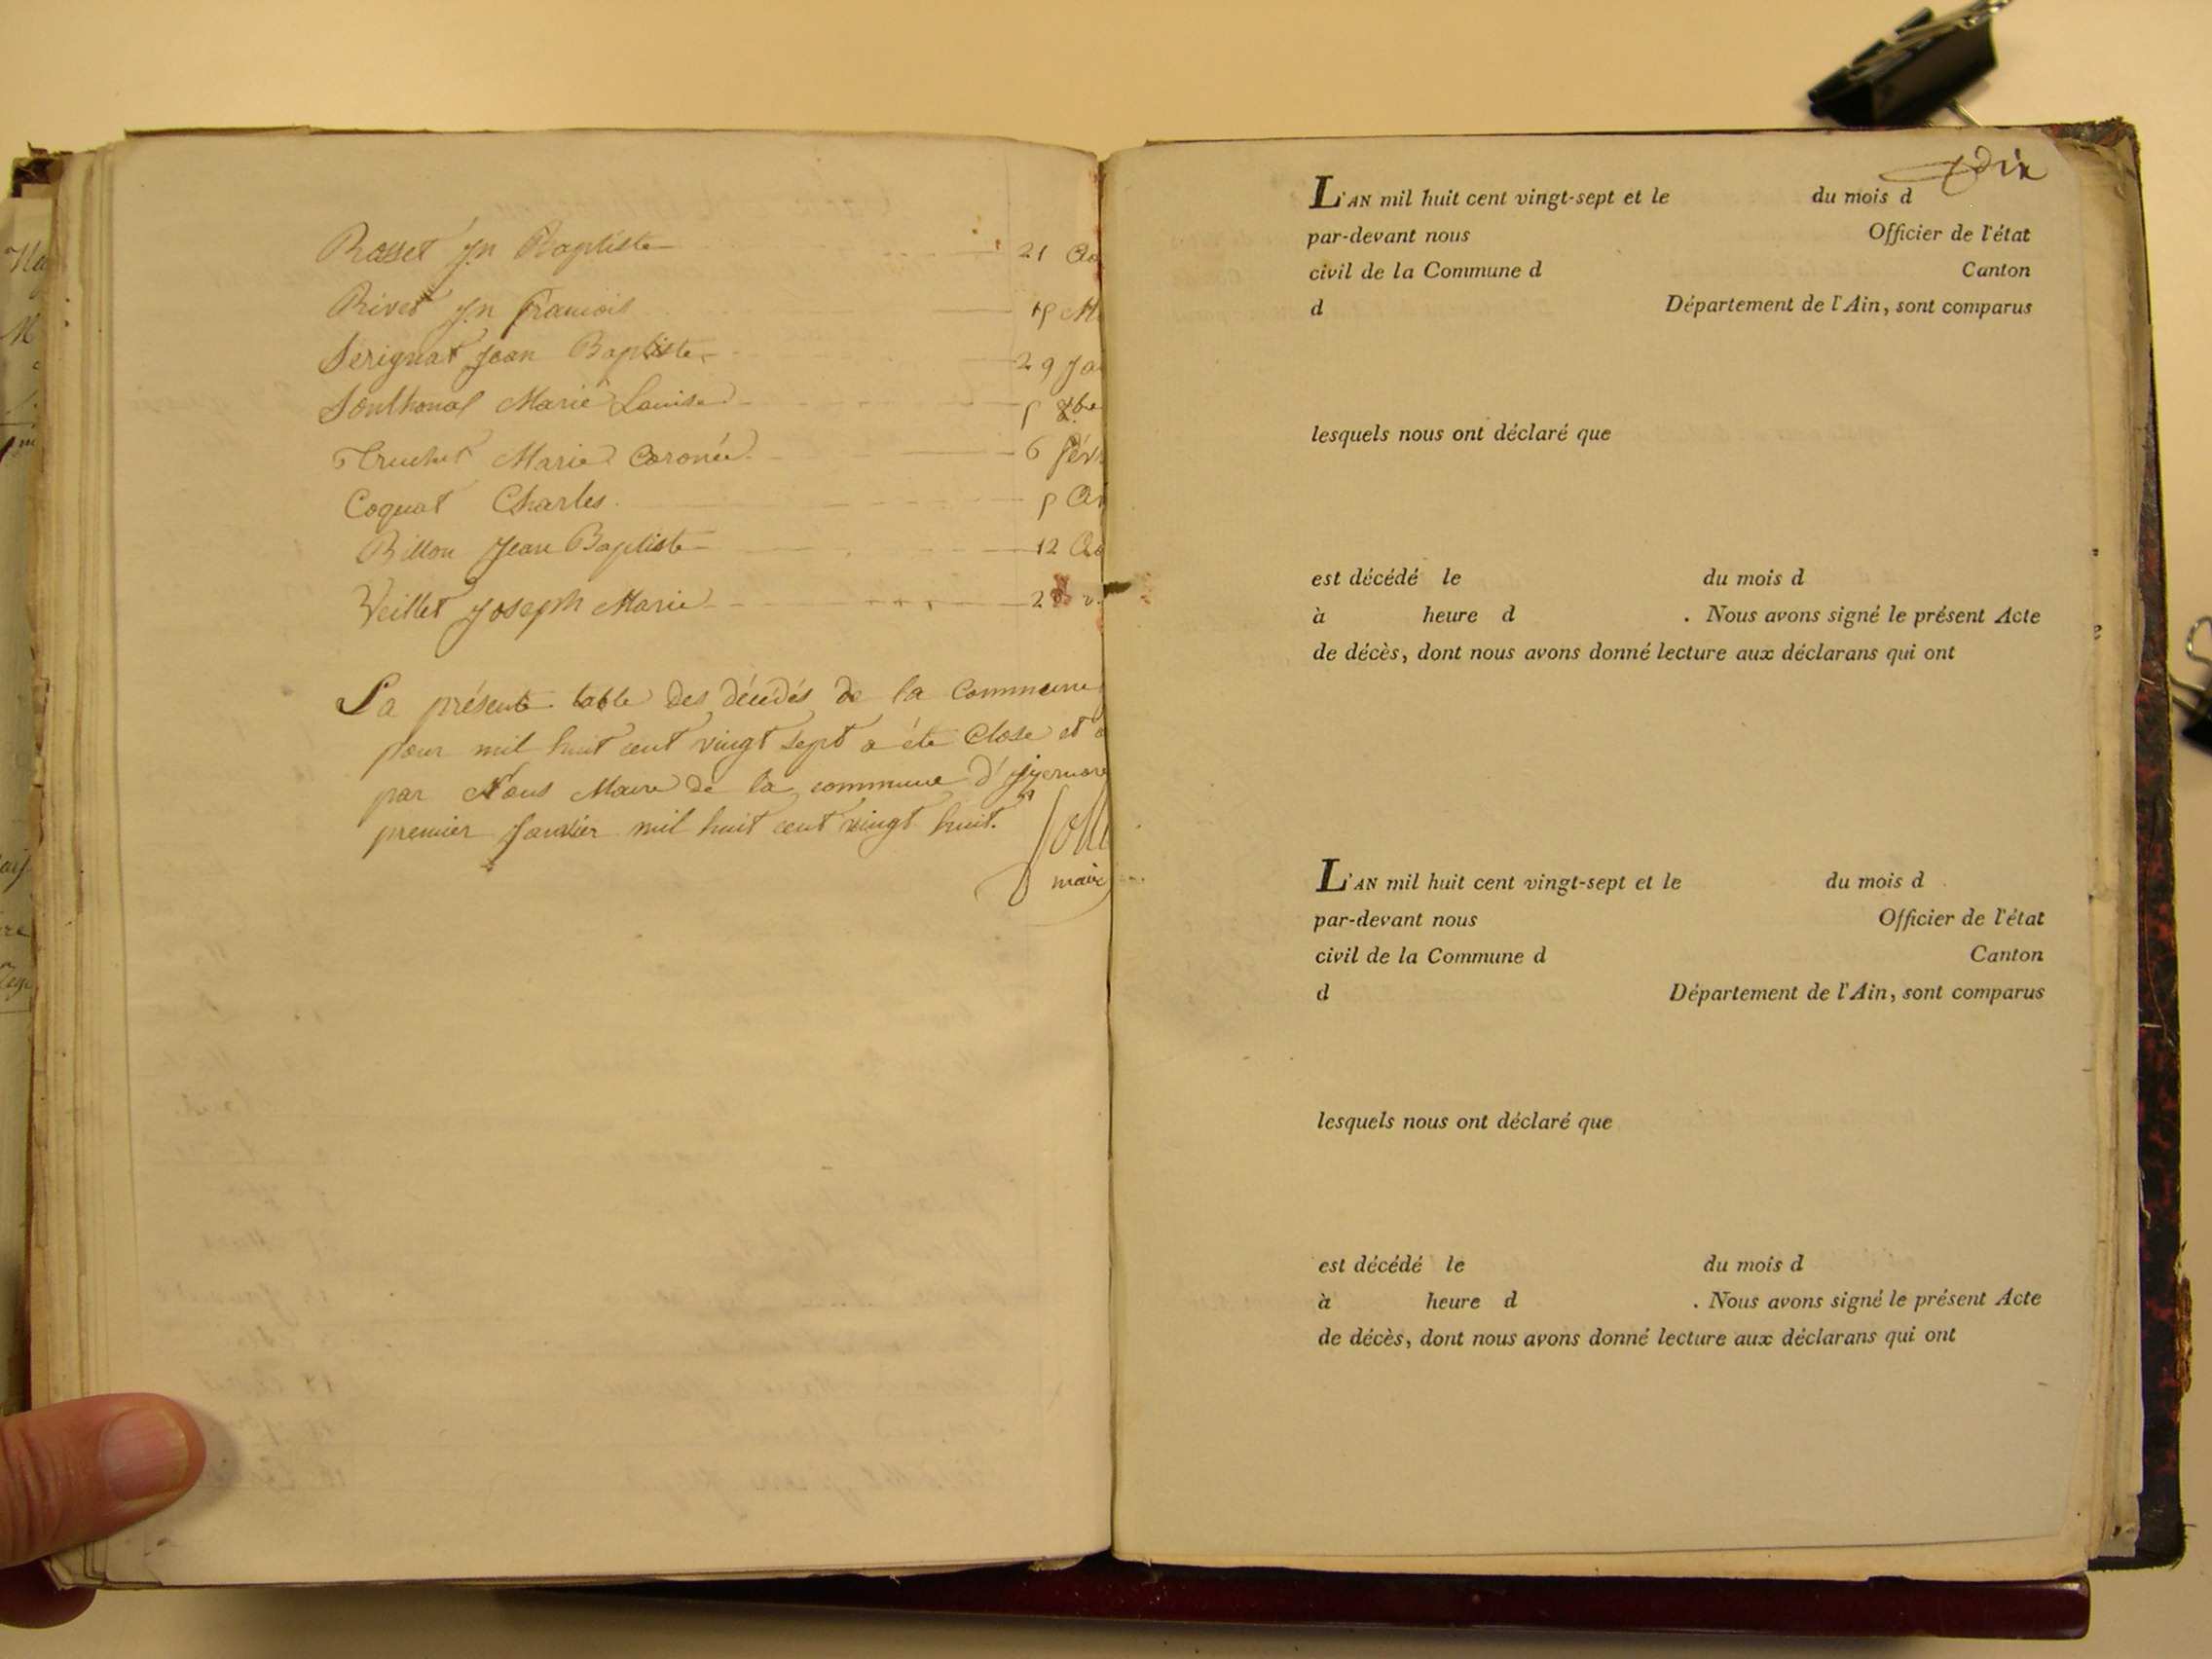 Rosset Jn Baptiste 21
Rivet Jn francois
Serignat Jean Baptiste 29
Marie Louise
Truchet Marie 6
Coquat Charles
Billon Jean Baptiste 12
Veillet Joseph Marie
La présente table des décédés de la Commune
pour mil huit cent vingt sept a été Close et
par Nous Maire de la commune d'
premier Janvier mil huit cent vingt huit.
maire
dix
L'AN mil huit cent vingt-sept et le du mois d
par-devant nous Officier de l'état
civil de la Commune d Canton
d Département de l'Ain, sont comparus
lesquels nous ont déclaré que
est décédé le du mois d
à heure d . Nous avons signé le présent Acte
de décès, dont nous avons donné lecture aux déclarans qui ont
L'AN mil huit cent vingt-sept et le du mois d
par-devant nous Officier de l'état
civil de la Commune d Canton
d Département de l'Ain, sont comparus
lesquels nous ont déclaré que
est décédé le du mois d
à heure d . Nous avons signé le présent Acte
de décès, dont nous avons donné lecture aux déclarans qui ont